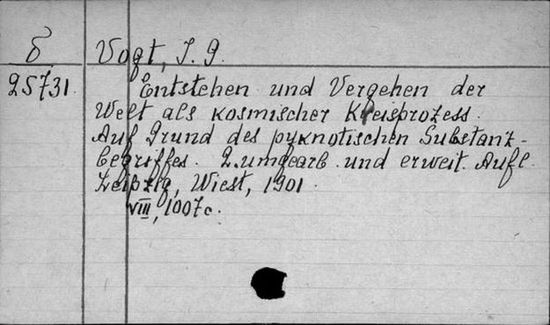 б Vogt, J. G.
25731 Entstehen und Vergehen der
Welt als kosmischer Kreisprozess.
Auf Grund des pyknotischen Substanz-
begriffes. 2. umgearb. und erweit. Aufl.
Leipzig, Wiest, 1901.
VIII, 1007 c.